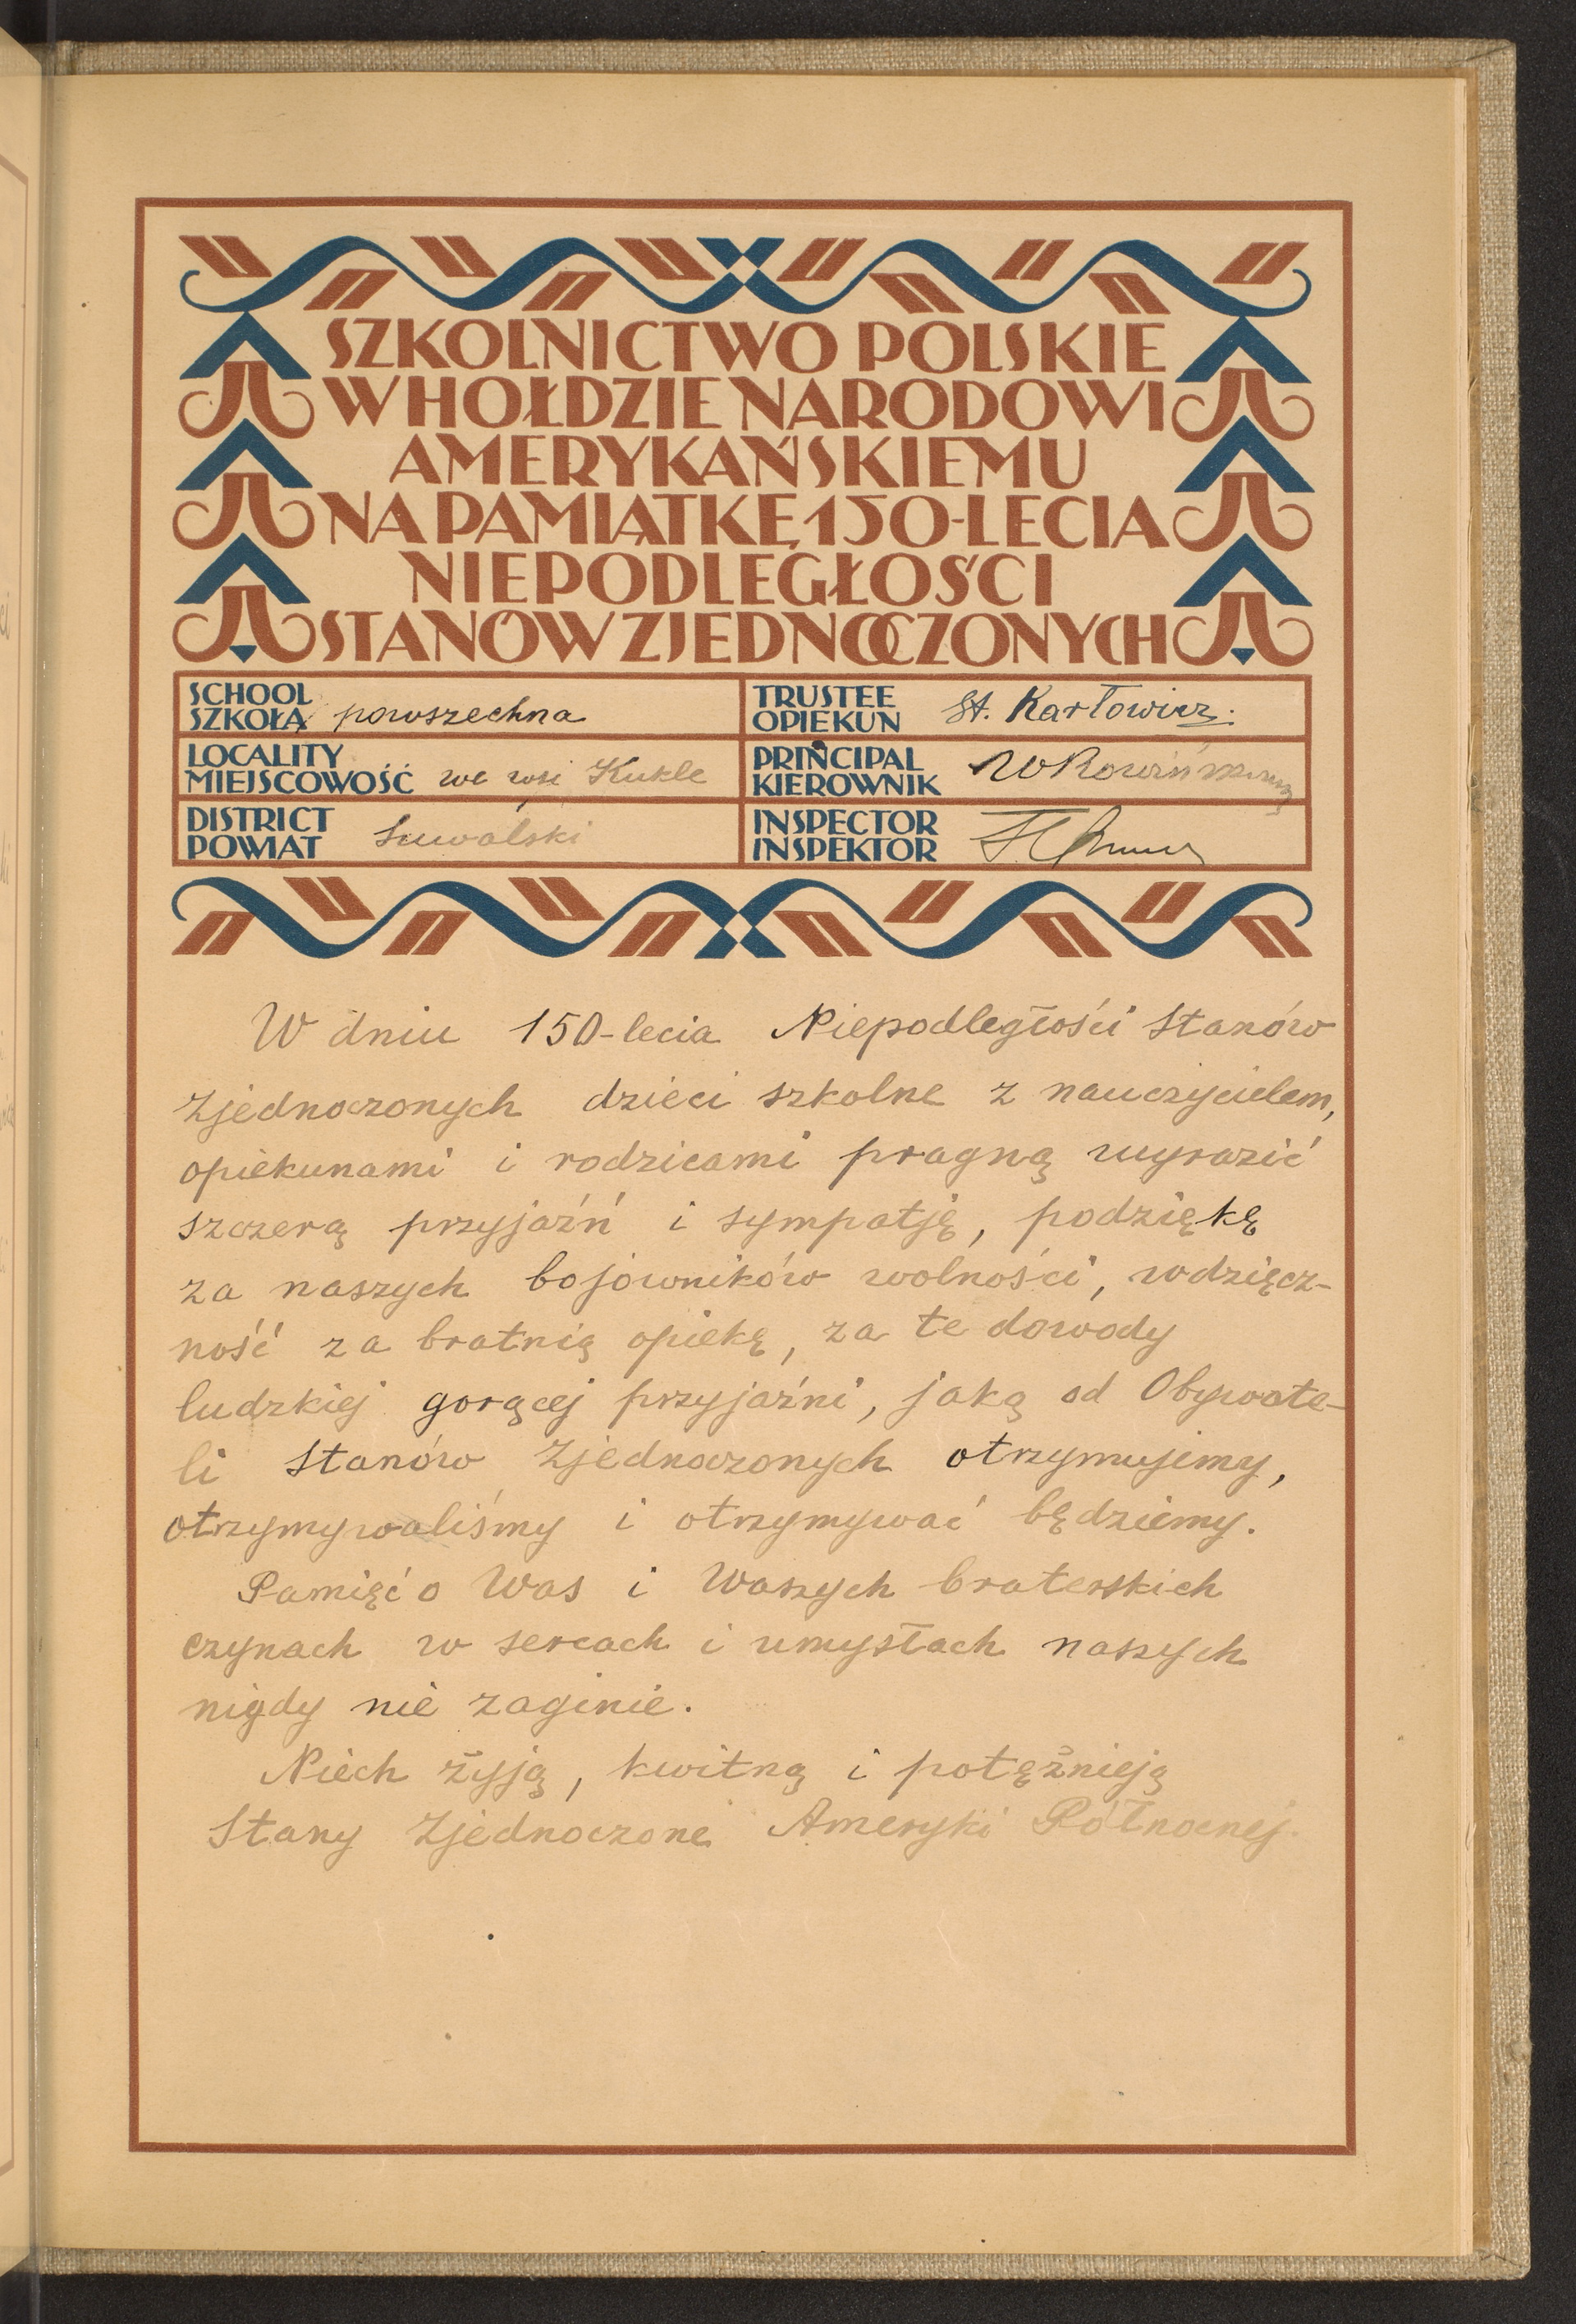 SZKOLNICTWO POLSKIE
W HOŁDZIE NARODOWI
AMERYKAŃSKIEMU
NA PAMIĄTKĘ 150-LECIA
NIEPODLEGŁOŚCI
STANÓW ZJEDNOCZONYCH
SCHOOL
SZKOŁA powszechna
TRUSTEE
OPIEKUN St. Karłowicz.
LOCALITY
MIEJSCOWOŚĆ we wsi Kukle
PRINCIPAL
KIEROWNIK
DISTRICT
POWIAT Suwalski
INSPECTOR
INSPEKTOR
W dniu 150-lecia Niepodległości Stanów
Zjednoczonych dzieci szkolne z nauczycielem,
opiekunami i rodzicami pragną wyrazić
szczerą przyjaźń i sympatję, podziękę
za naszych bojowników wolności, wdzięcz-
ność za bratnią opiekę, za te dowody
ludzkiej gorącej przyjaźni, jaką od Obywate-
li Stanów Zjednoczonych otrzymujemy,
otrzymywaliśmy i otrzymywać będziemy.
Pamięć o Was i Waszych braterskich
czynach w sercach i umysłach naszych
nigdy nie zaginie.
Niech żyją, kwitną i potężnieją
Stany Zjednoczone Ameryki Północnej.